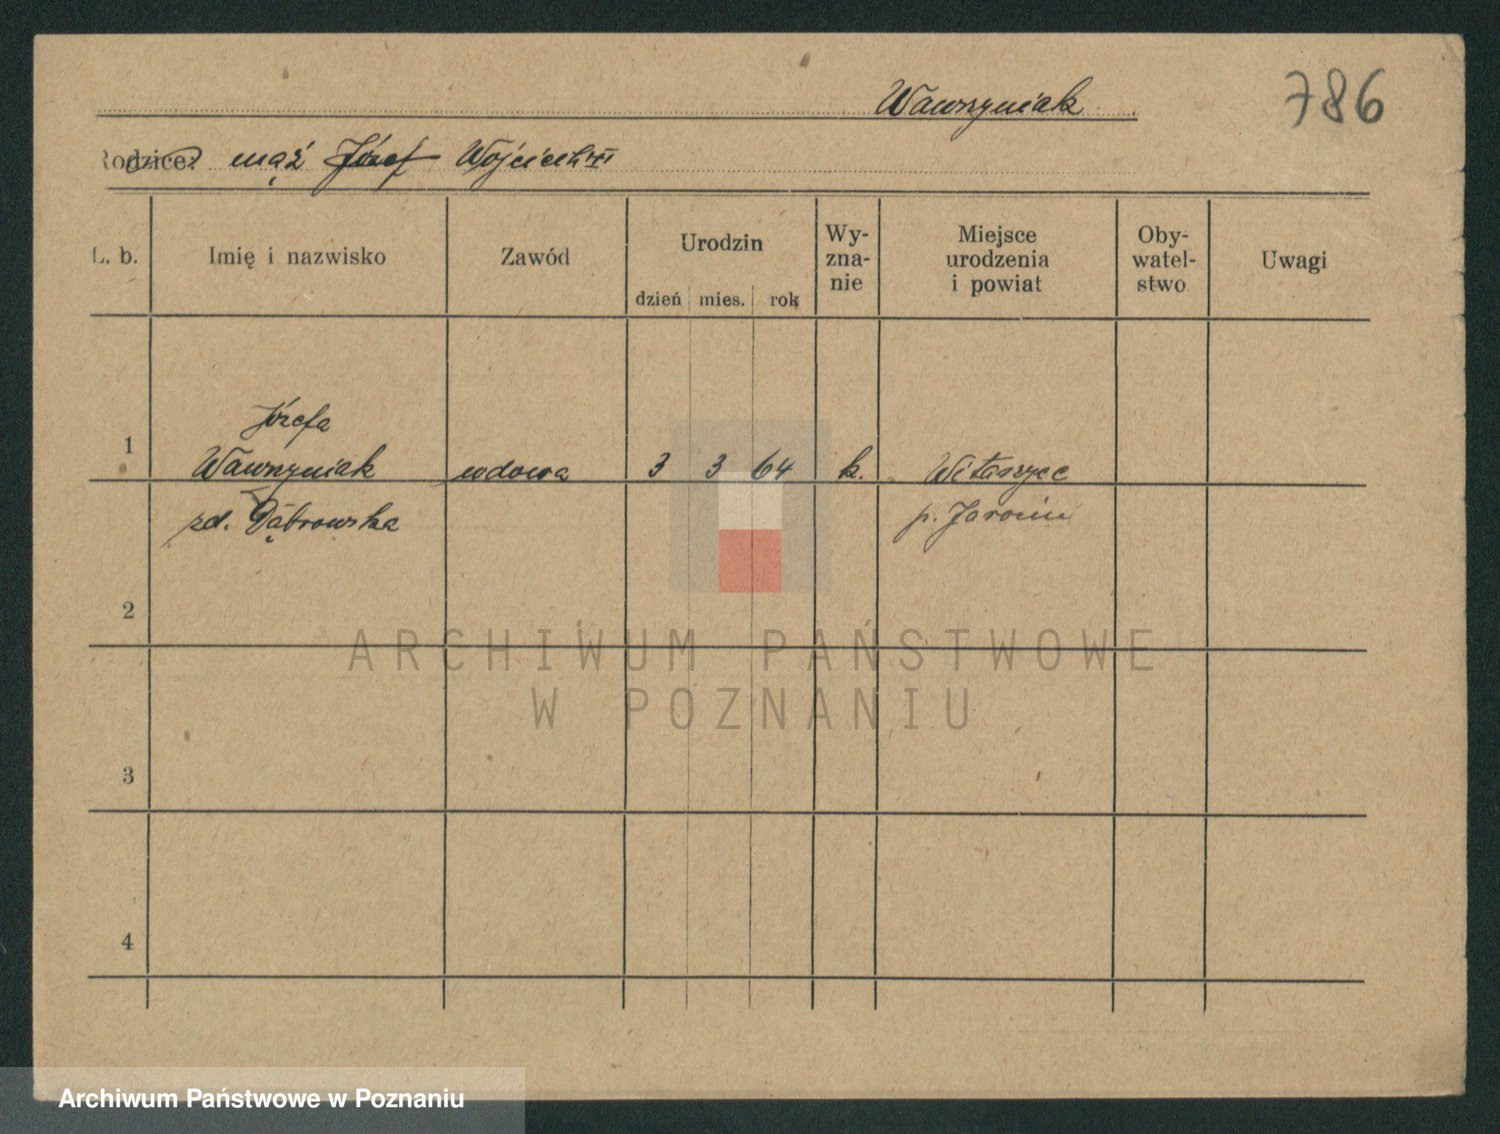 Wawrzyniak
786
Rodzice: mąż Józef Wojciech
L. b.
Imię i nazwisko
Zawód
Urodzin
dzień mies. rok
Wy-
zna-
nie
Miejsce
urodzenia
i powiat
Oby-
watel-
stwo
Uwagi
Józefa
1 Wawrzyniak wdowa 3 3 64 k. Witaszyce
zd. Dąbrowska p. Jarocin
2
3
4
ARCHIWUM PAŃSTWOWE
W POZNANIU
Archiwum Państwowe w Poznaniu